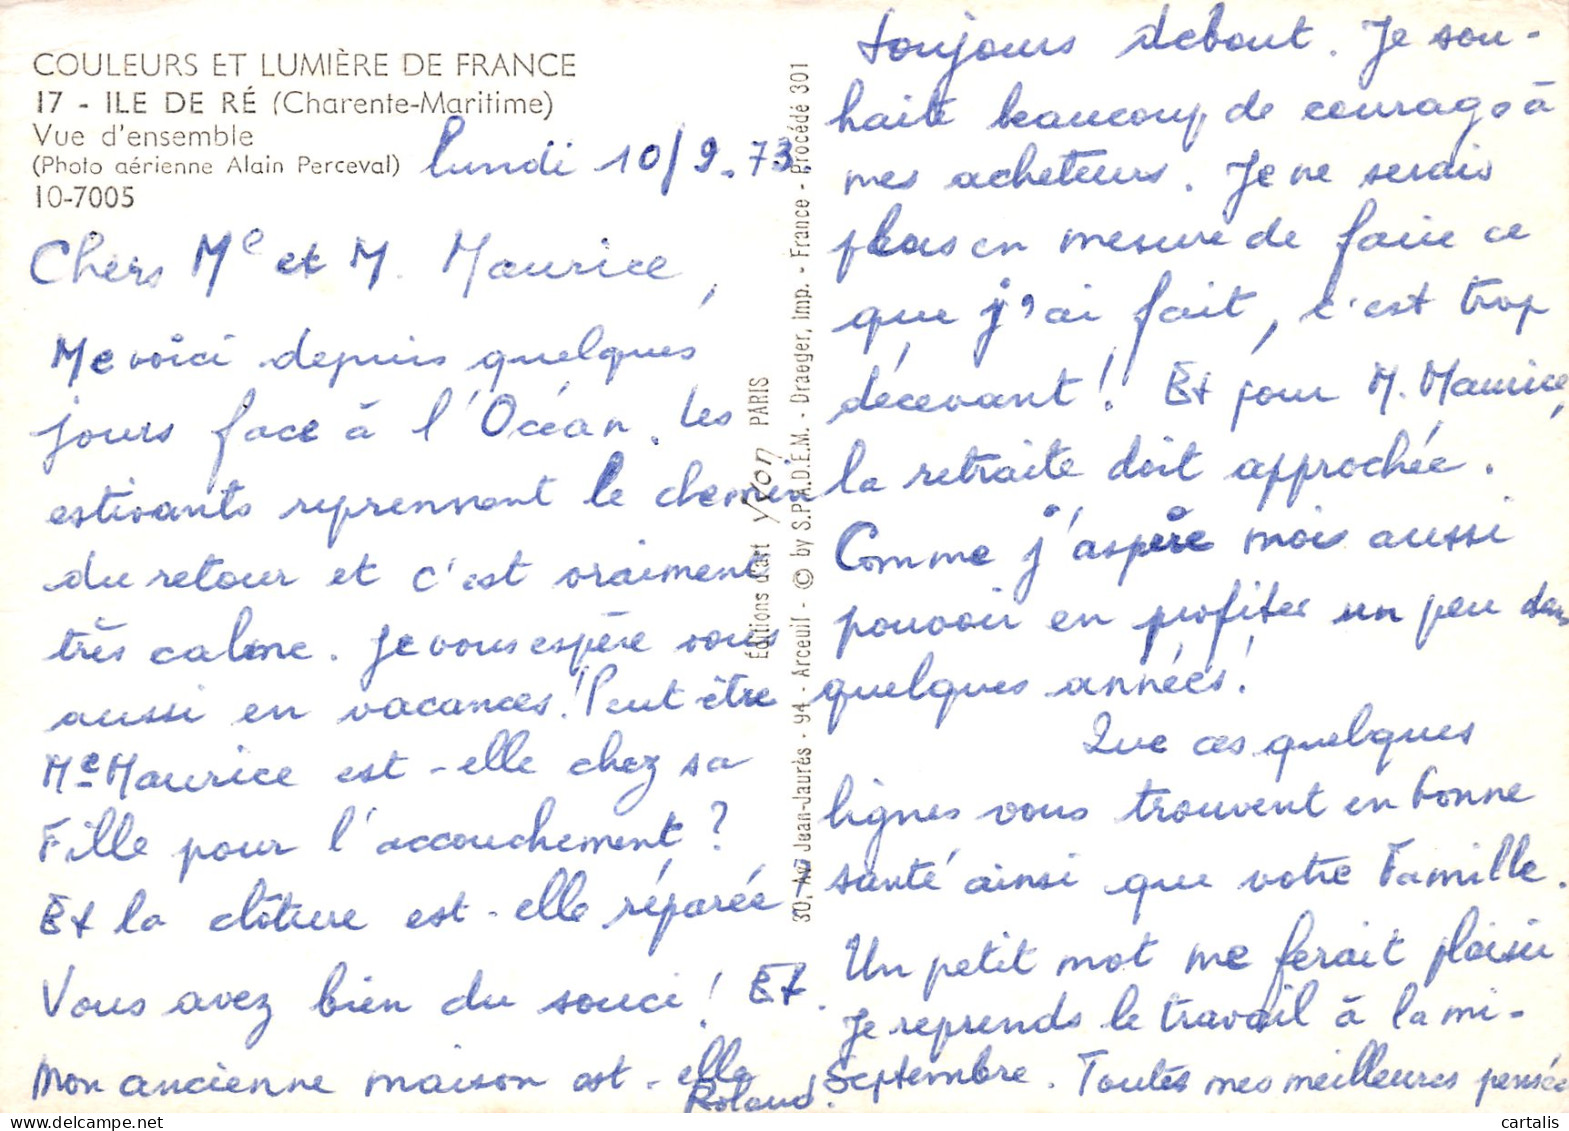 COULEURS ET LUMIÈRE DE FRANCE
17 - ILE DE RÉ (Charente-Maritime)
Vue d'ensemble
(Photo aérienne Alain Perceval)
10-7005
lundi 10/9.73
Chers Me et M. Maurice,
Me voici depuis quelques
jours face à l'Océan. Les
estivants reprennent le chemin
du retour et c'est vraiment
très calme. Je vous espère vous
aussi en vacances! Peut être
Me Maurice est-elle chez sa
Fille pour l'accouchement?
Et la clôture est-elle réparée
Vous avez bien du souci! Et
Mon ancienne maison est-elle
toujours debout. Je sou-
haite beaucoup de courage à
mes acheteurs. Je ne serais
plus en mesure de faire ce
que j'ai fait, c'est trop
décevant! Et pour M. Maurice,
la retraite doit approchée.
Comme j'aspère mois aussi
pouvoir en profiter un peu dans
quelques années!
Que ces quelques
lignes vous trouvent en bonne
santé ainsi que votre Famille.
Un petit mot me ferait plaisir
Je reprends le travail à la mi-
Septembre. Toutes mes meilleures pensée
Roland.
Éditions d'art Yvon PARIS
30, Av. Jean-Jaurès - 94 - Arceuil - © by S.P.A.D.E.M. - Draeger, Imp. - France - Procédé 301
cartalis